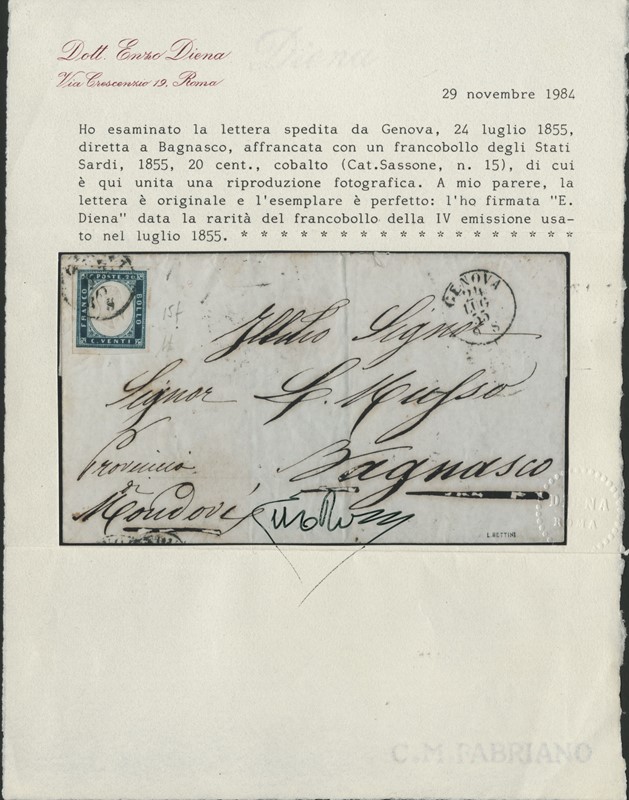 Dott. Enzo Diena
Via Crescenzio 19, Roma
Diena
29 novembre 1984
Ho esaminato la lettera spedita da Genova, 24 luglio 1855,
diretta a Bagnasco, affrancata con un francobollo degli Stati
Sardi, 1855, 20 cent., cobalto (Cat.Sassone, n. 15), di cui
è qui unita una riproduzione fotografica. A mio parere, la
lettera è originale e l'esemplare è perfetto: l'ho firmata "E.
Diena" data la rarità del francobollo della IV emissione usa-
to nel luglio 1855. * * * * * * * * * * * * * * * * *
FRANCO
POSTE 20
BOLLO
C. VENTI
15f
GENOVA
24
LUG
55
Signor
Signor
Bagnasco
Provincia
di
Mondovì
DIENA
ROMA
C.M. FABRIANO